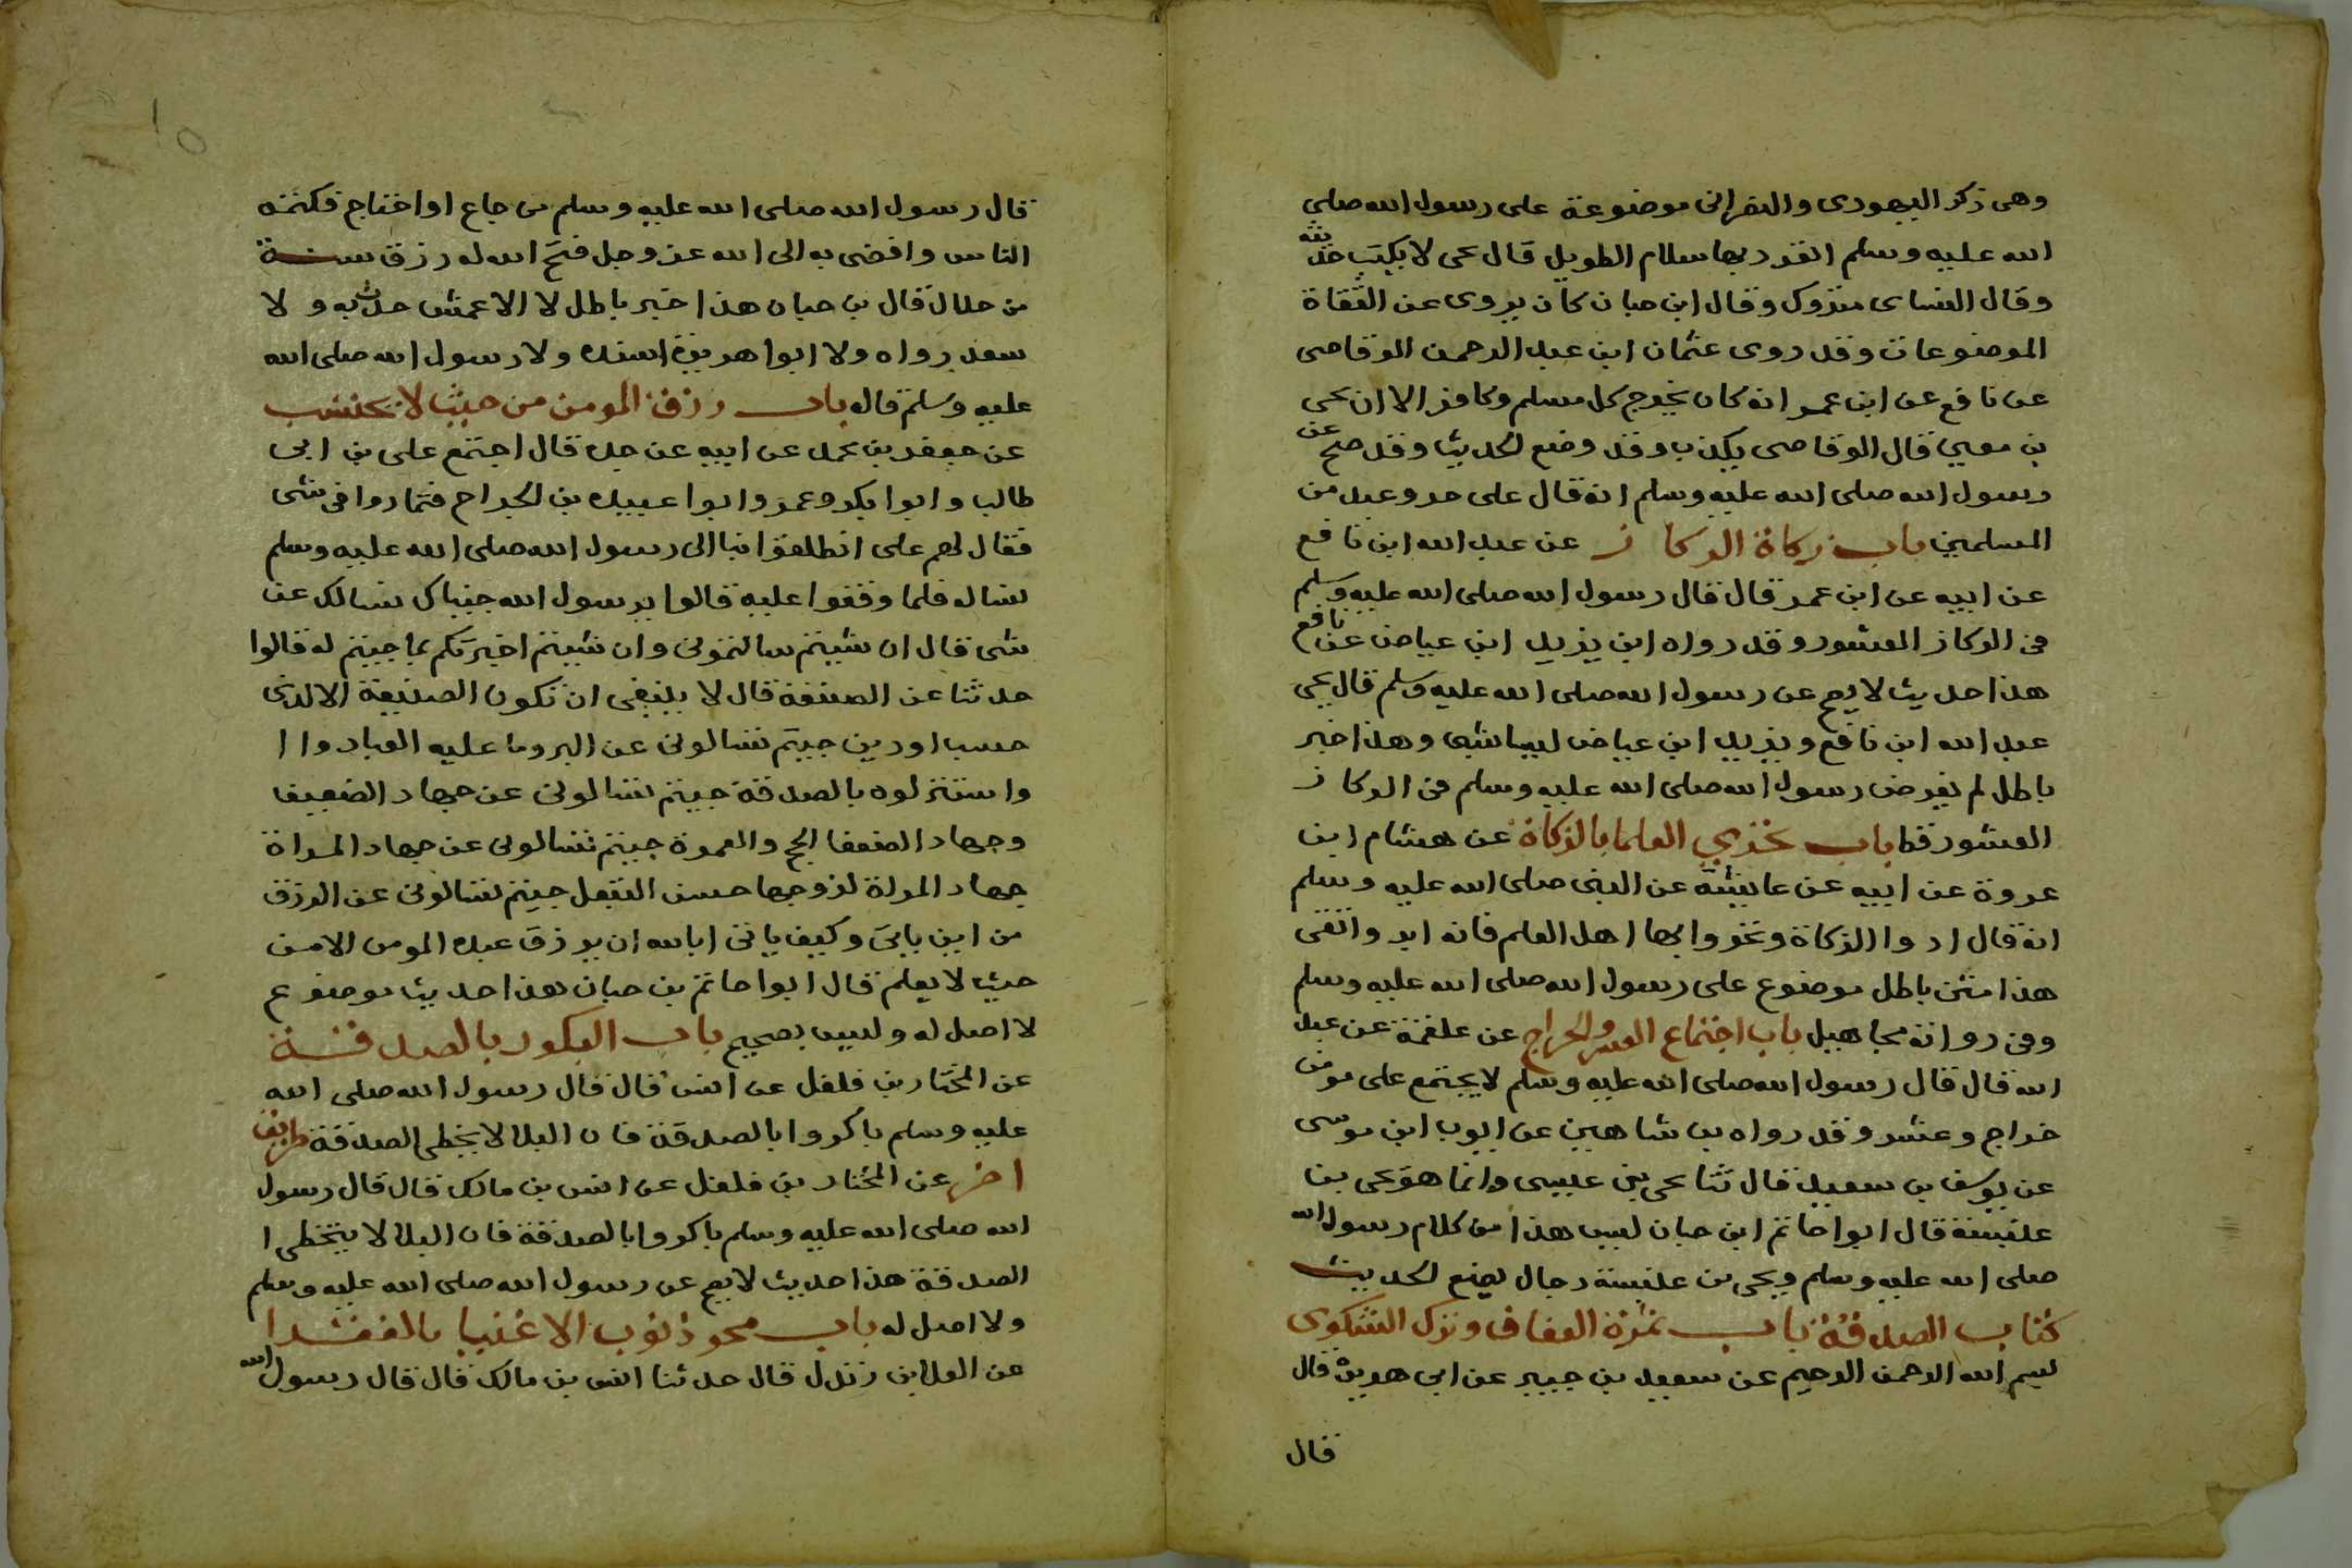 وهى ذكر اليهودى والنصرانى موضوعة على رسول الله صلي
الله عليه وسلم انفرد بها سلام الطويل قال يحى لا يكتب حديثه
وقال النساى متروك وقال ابن حبان كان يروى عن الثقاة
الموضوعات وقد روى عثمان ابن عبد الرحمن الوقاصى
عن نافع عن ابن عمر انه كان يخرج كل مسلم وكافر الا ان يحى
بن معين قال الوقاصى يكذب وقد وضع الحديث وقد صح عن
رسول الله صلى الله عليه وسلم انه قال على حر وعبد من
المسلمين باب زكاة الركاز عن عبد الله ابن نافع
عن ابيه عن ابن عمر قال قال رسول الله صلى الله عليه وسلم
فى الركاز العشور وقد رواه ابن يزيد ابن عياض عن نافع
هذا حديث لا يصح عن رسول الله صلى الله عليه وسلم قال يحيى
عبد الله ابن نافع ويزيد ابن عياض ليسا بشى وهذا خبر
باطل لم يفرض رسول الله صلى الله عليه وسلم فى الركاز
العشور قط باب تخرى العلما بالزكاة عن هشام ابن
عروة عن ابيه عن عايشة عن النبى صلى الله عليه وسلم
انه قال ادوا الزكاة وتحروا بها اهل العلم فانه ابر واتقى
هذا متن باطل موضوع على رسول الله صلى الله عليه وسلم
وفى رواته مجاهيل باب اجتماع العشر والخراج عن علقمة عن عبد
الله قال قال رسول الله صلى الله عليه وسلم لا يجتمع على مومن
خراج وعشر وقد رواه بن شاهين عن ايوب ابن موسى
عن يوسف بن سعيد قال ثنا يحى بن عيسى وانما هو يحى بن
عنبسة قال ابوا حاتم ابن حبان ليس هذا من كلام رسول الله
صلى الله عليه وسلم ويحى بن عنبسة دجال يضع الحديث
كتاب الصدقة باب ثمرة العفاف وترك الشكوى
بسم الله الرحمن الرحيم عن سعيد بن جبير عن ابى هريرة قال
قال
١٥
قال رسول الله صلى الله عليه وسلم من جاع او احتاج فكتمه
الناس وافضى به الى الله عز وجل فتح الله له رزق سنة
من حلال قال بن حبان هذا خبر باطل لا الاعمش حدث به ولا
سعيد رواه ولا ابوا هريرة اسنده ولا رسول الله صلى الله
عليه وسلم قاله باب رزق المومن من حيث لا يحتسب
عن جعفر بن محمد عن ابيه عن جده قال اجتمع على بن ابى
طالب وابوا بكر وعمر وابوا عبيده بن الجراح فتماروا فى شى
فقال لهم على انطلقوا بنا الى رسول الله صلى الله عليه وسلم
نساله فلما وقفوا عليه قالوا يرسول الله جيناك نسالك عن
شى قال ان شيتم سالتمونى وان شيتم اخبرتكم بما جيتم له قالوا
حدثنا عن الصنفة قال لا ينبغى ان تكون الصنيعة الا لذى
حسب او دين جيتم تسالونى عن البر وما عليه العباد وا ا
واستنزلوه بالصدقة جيتم تسالونى عن جهاد الضعيف
وجهاد الضعفا الحج والعمرة جيتم تسالونى عن جهاد المراة
جهاد المراة لزوجها حسن التبعل جيتم تسالونى عن الرزق
من اين ياتى وكيف ياتى ابا الله ان يرزق عبده المومن الا من
حيث لا يعلم قال ابوا حاتم بن حبان هذا حديث موضوع
لا اصل له وليس بصحيح باب البكور بالصدقة
عن المختار بن فلفل عن انس قال قال رسول الله صلى الله
عليه وسلم باكروا بالصدقة فان البلا لا يخطى الصدقة طريق
اخر عن المختار بن فلفل عن انس بن مالك قال قال رسول
الله صلى الله عليه وسلم باكروا بالصدقة فان البلا لا يتخطى ا
الصدقة هذا حديث لا يصح عن رسول الله صلى الله عليه وسلم
ولا اصل له باب محو ذنوب الاغنيا بالفقرا
عن العلا بن زيدل قال حدثنا انس بن مالك قال قال رسول الله